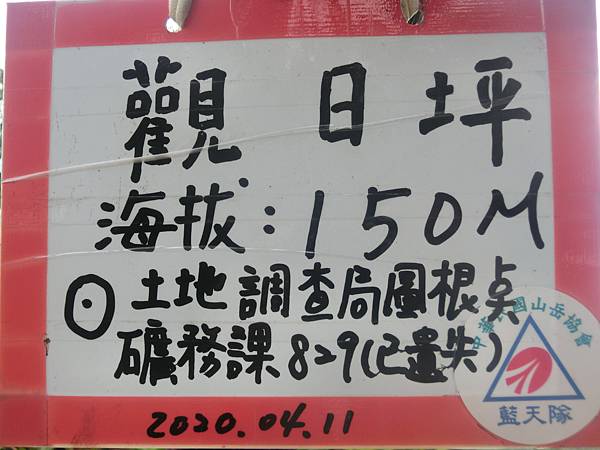 觀日坪
海拔:150M
⊙土地調查局圖根點
礦務課829(已遺失)
2020.04.11
中華民國山岳協會
藍天隊